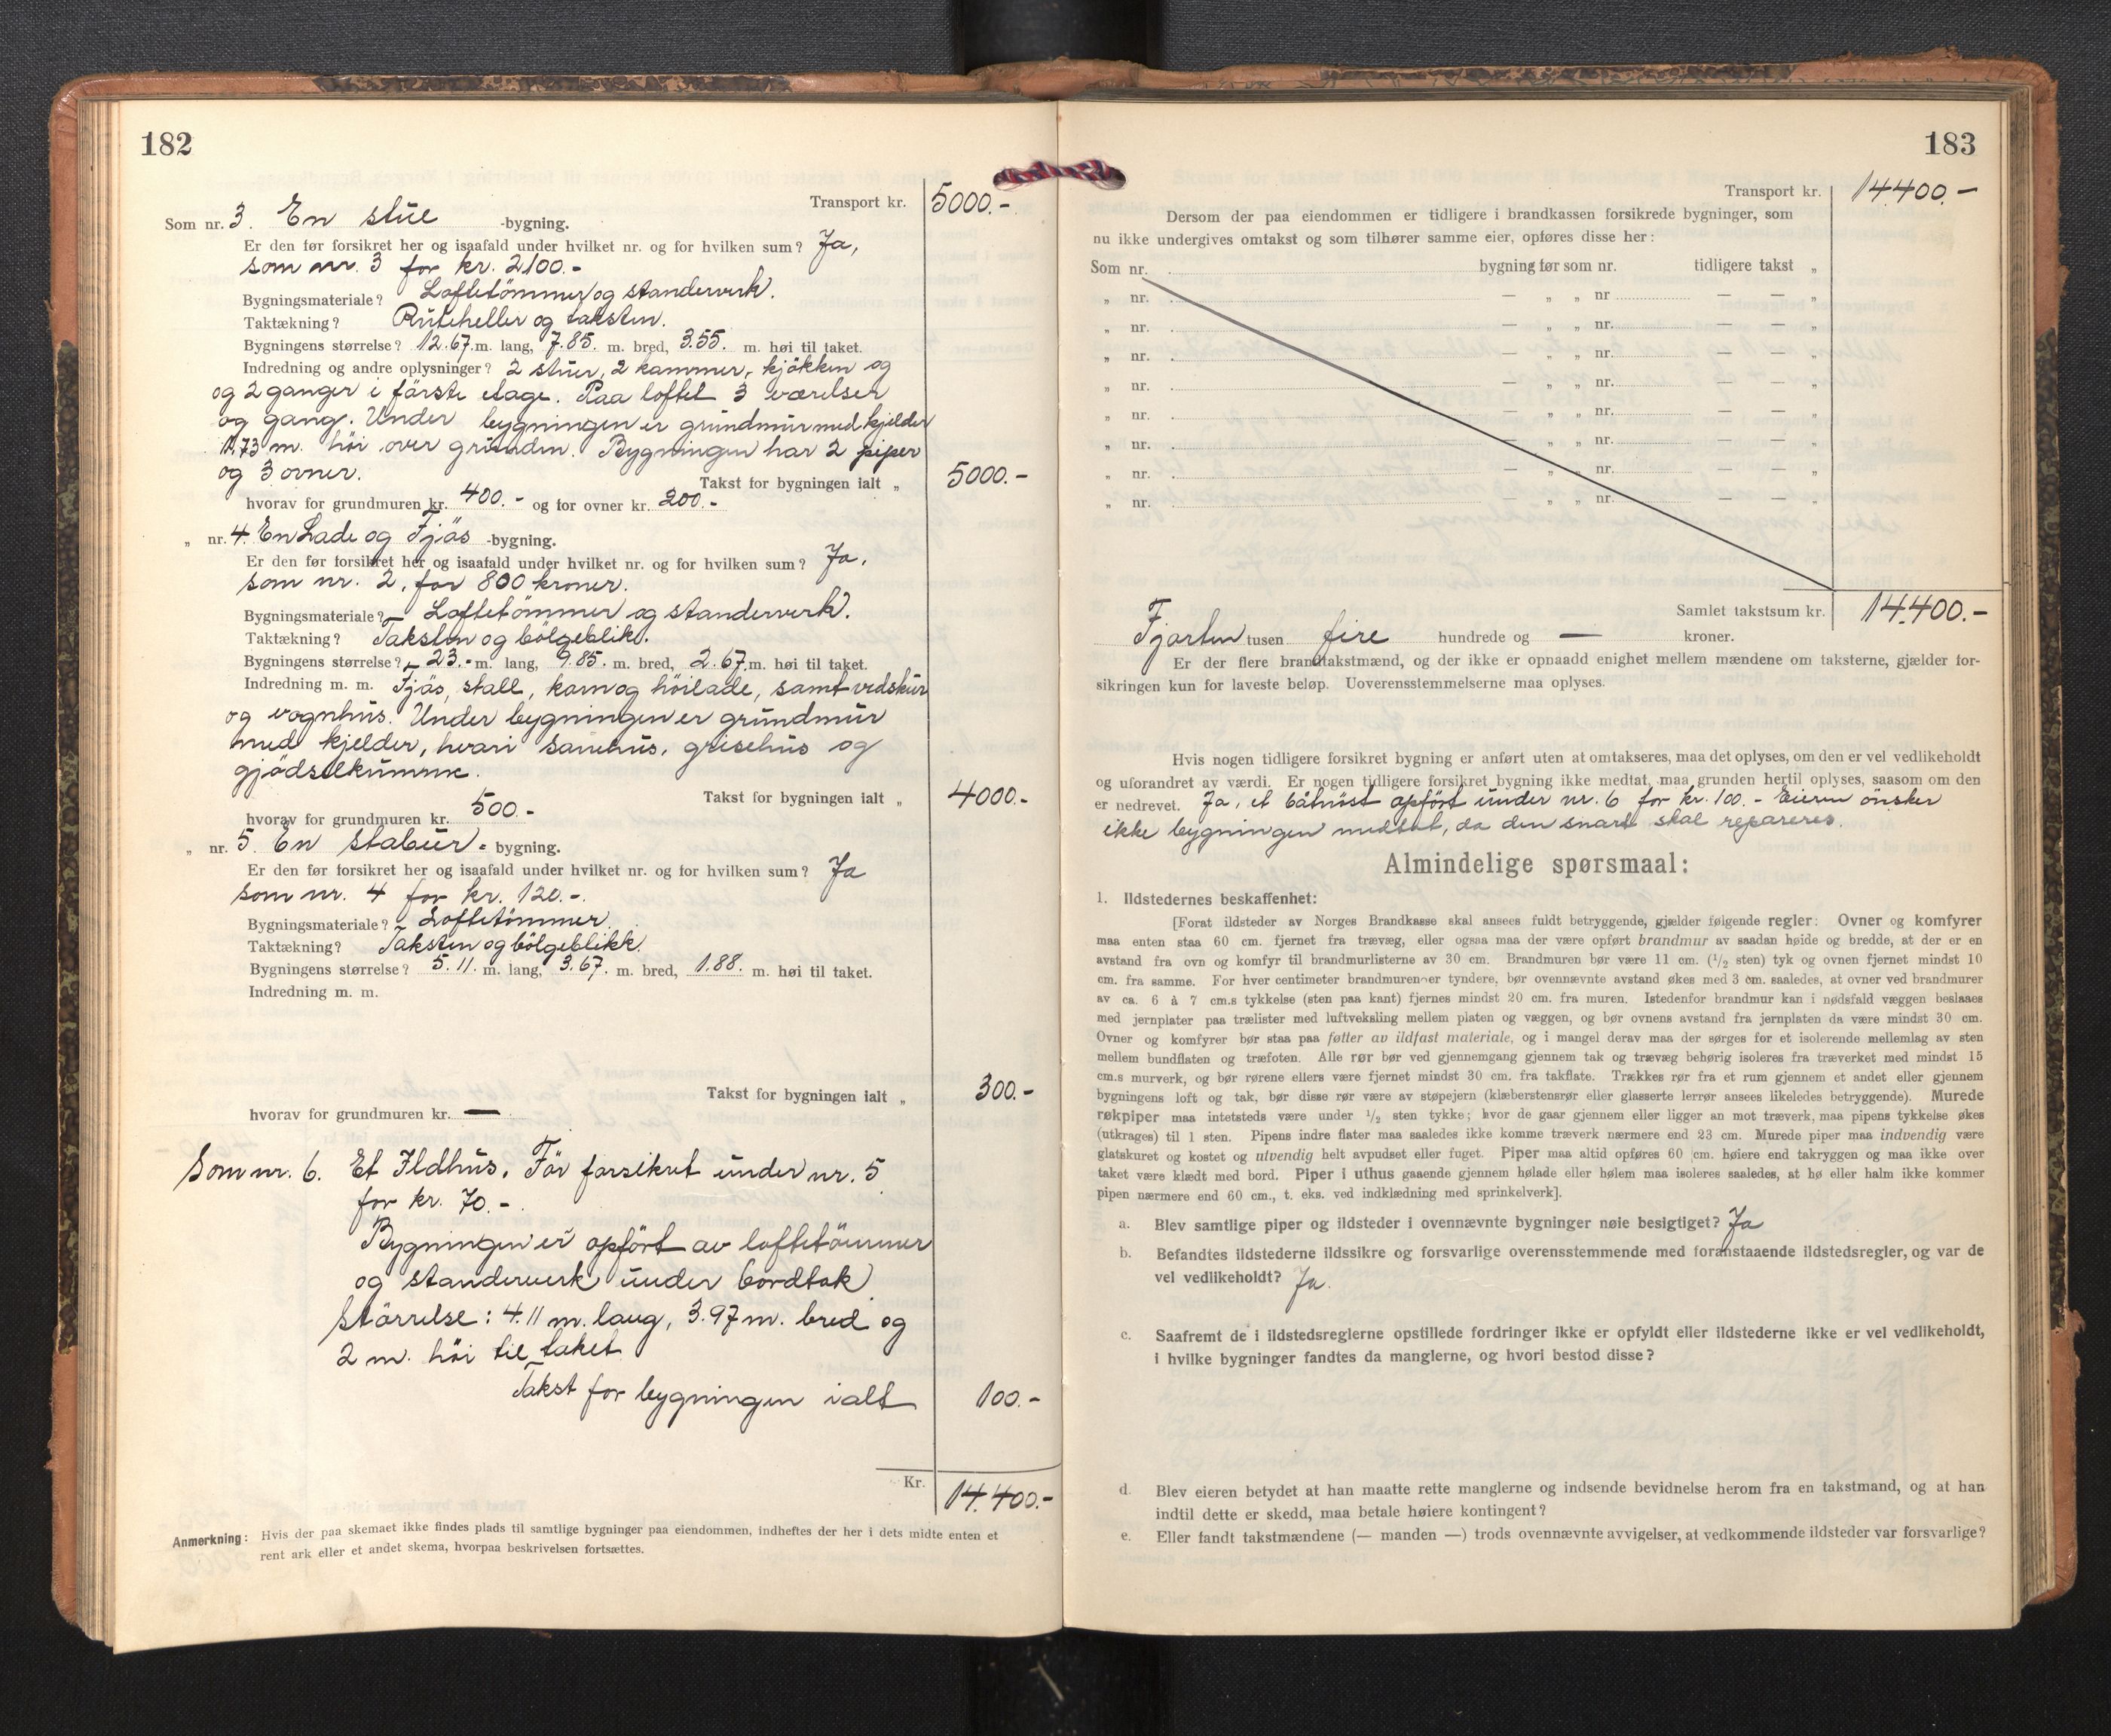 182
Transport kr. 5000.-
Som nr. 3. En stue -bygning.
Er den før forsikret her og isaafald under hvilket nr. og for hvilken sum? Ja,
som nr. 3 for kr. 2100.-
Bygningsmateriale? Loftetömmer og standerverk.
Taktækning? Ruteheller og taksten.
Bygningens størrelse? 12.67. m. lang, 7.85. m. bred, 3.55. m. høi til taket.
Indredning og andre oplysninger? 2 stuer, 2 kammer, kjökken og
og 2 ganger i förste etage. Paa loftet 3 værelser
og gang. Under bygningen er grundmur med kjelder
1.73 m. höi over grunden. Bygningen har 2 piper
og 3 ovner.
Takst for bygningen ialt „ 5000.-
hvorav for grundmuren kr. 400.- og for ovner kr. 200.-
„ nr. 4. En Lade og Fjös -bygning.
Er den før forsikret her og isaafald under hvilket nr. og for hvilken sum? Ja,
som nr. 2, for 800 kroner.
Bygningsmateriale? Loftetömmer og standerverk.
Taktækning? Taksten og bölgeblik.
Bygningens størrelse? 23.- m. lang, 9.85. m. bred, 2.67. m. høi til taket.
Indredning m. m. Fjös, stall, korn og höilade, samt vedskur
og vognhus. Under bygningen er grundmur
med kjelder, hvori sauehus, grisehus og
gjödselkumme.
Takst for bygningen ialt „ 4000.-
hvorav for grundmuren kr. 500.-
„ nr. 5. En stabur- bygning.
Er den før forsikret her og isaafald under hvilket nr. og for hvilken sum? Ja
som nr. 4 for kr. 120.-
Bygningsmateriale? Loftetömmer.
Taktækning? Taksten og bölgeblikk.
Bygningens størrelse? 5.11. m. lang, 3.67. m. bred, 1.88. m. høi til taket.
Indredning m. m.
Takst for bygningen ialt „ 300.-
hvorav for grundmuren kr. —
Som nr. 6. Et Ildhus.För forsikret under nr. 5
for kr. 70.-
Bygningen er opfört av loftetömmer
og standerverk under bordtak.
Störrelse: 4.11 m. lang, 3.97 m. bred og
2 m. höi til taket.
Takst for bygningen ialt 100.-
Kr. 14.400.-
Anmerkning: Hvis der paa skemaet ikke findes plads til samtlige bygninger paa eiendommen, indheftes der her i dets midte enten et
rent ark eller et andet skema, hvorpaa beskrivelsen fortsættes.
183
Transport kr. 14.400.-
Dersom der paa eiendommen er tidligere i brandkassen forsikrede bygninger, som
nu ikke undergives omtakst og som tilhører samme eier, opføres disse her:
Som nr. bygning før som nr. tidligere takst „
„ nr. — „ „ nr — — „
„ nr. — „ „ nr. — — „
„ nr. — „ „ nr. — — „
„ nr. — „ „ nr. — — „
„ nr. — „ „ nr. — — „
„ nr. — „ „ nr. — — „
„ nr. — „ „ nr. — — „
„ nr. — „ „ nr. — — „
Samlet takstsum kr. 14.400.-
Fjorten tusen fire hundrede og — kroner.
Er der flere brandtakstmænd, og der ikke er opnaadd enighet mellem mændene om taksterne, gjælder for-
sikringen kun for laveste beløp. Uoverensstemmelserne maa oplyses.
Hvis nogen tidligere forsikret bygning er anført uten at omtakseres, maa det oplyses, om den er vel vedlikeholdt
og uforandret av værdi. Er nogen tidligere forsikret bygning ikke medtat, maa grunden hertil oplyses, saasom om den
er nedrevet. Ja, et båtnöst opfört under nr. 6 for kr. 100.- Eieren önsker
ikke bygningen medtat, da den snart skal repareres.
Almindelige spørsmaal:
1. Ildstedernes beskaffenhet:
[Forat ildsteder av Norges Brandkasse skal ansees fuldt betryggende, gjælder følgende regler: Ovner og komfyrer
maa enten staa 60 cm. fjernet fra trævæg, eller ogsaa maa der være opført brandmur av saadan høide og bredde, at der er en
avstand fra ovn og komfyr til brandmurlisterne av 30 cm. Brandmuren bør være 11 cm. (1/2 sten) tyk og ovnen fjernet mindst 10
cm. fra samme. For hver centimeter brandmuren er tyndere, bør ovennævnte avstand økes med 3 cm. saaledes, at ovner ved brandmurer
av ca. 6 à 7 cm.s tykkelse (sten paa kant) fjernes mindst 20 cm. fra muren. Istedenfor brandmur kan i nødsfald væggen beslaaes
med jernplater paa trælister med luftveksling mellem platen og væggen, og bør ovnens avstand fra jernplaten da være mindst 30 cm.
Ovner og komfyrer bør staa paa føtter av ildfast materiale, og i mangel derav maa der sørges for et isolerende mellemlag av sten
mellem bundflaten og træfoten. Alle rør bør ved gjennemgang gjennem tak og trævæg behørig isoleres fra træverket med mindst 15
cm.s murverk, og bør rørene ellers være fjernet mindst 30 cm. fra takflate. Trækkes rør fra et rum gjennem et andet eller gjennem
bygningens loft og tak, bør disse rør være av støpejern (klæberstensrør eller glasserte lerrør ansees likeledes betryggende). Murede
røkpiper maa intetsteds være under 1/2 sten tykke; hvor de gaar gjennem eller ligger an mot træverk, maa pipens tykkelse økes
(utkrages) til 1 sten. Pipens indre flater maa saaledes ikke komme træverk nærmere end 23 cm. Murede piper maa indvendig være
glatskuret og kostet og utvendig helt avpudset eller fuget. Piper maa altid opføres 60 cm. høiere end takryggen og maa ikke over
taket være klædt med bord. Piper i uthus gaaende gjennem hølade eller hølem maa isoleres saaledes, at hø eller halm ikke kommer
pipen nærmere end 60 cm., t. eks. ved indklædning med sprinkelverk].
a. Blev samtlige piper og ildsteder i ovennævnte bygninger nøie besigtiget? Ja
b. Befandtes ildstederne ildssikre og forsvarlige overensstemmende med foranstaaende ildstedsregler, og var de
vel vedlikeholdt? Ja.
c. Saafremt de i ildstedsreglerne opstillede fordringer ikke er opfyldt eller ildstederne ikke er vel vedlikeholdt,
i hvilke bygninger fandtes da manglerne, og hvori bestod disse?
d. Blev eieren betydet at han maatte rette manglerne og indsende bevidnelse herom fra en takstmand, og at han
indtil dette er skedd, maa betale høiere kontingent?
e. Eller fandt takstmændene (— manden —) trods ovennævnte avvigelser, at vedkommende ildsteder var forsvarlige?